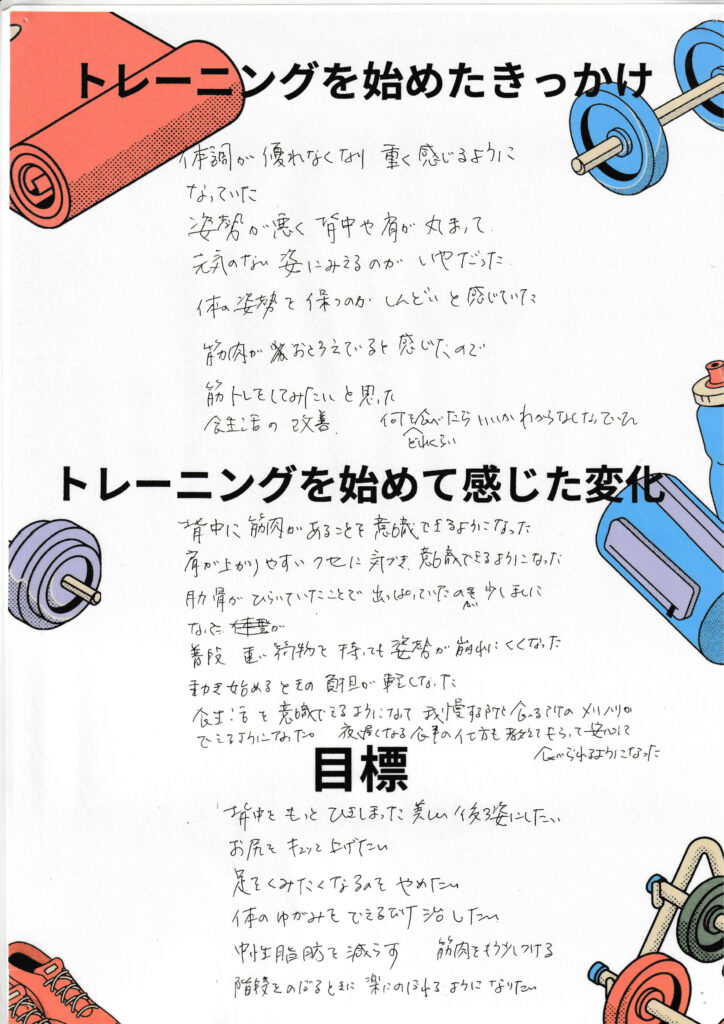 トレーニングを始めたきっかけ
体調が優れなくなり 重く感じるように
なっていた
姿勢が悪く 背中や肩が丸まって
元気のない姿にみえるのがいやだった
体の姿勢を保つのがしんどいと感じていた
筋肉がおとろえていると感じたので
筋トレをしてみたいと思った
食生活の改善 何を食べたらいいかわからなくなっていた
どれくらい
トレーニングを始めて感じた変化
背中に筋肉があることを意識できるようになった
肩が上がりやすいクセに気づき 意識できるようになった
肋骨がひらいていたことで出っぱっていたのが少しましに
なった
普段 重い荷物を持っても姿勢が崩れにくくなった
動き始めるときの負担が軽くなった
食生活を意識できるようになって 我慢する時と食べる時のメリハリが
できるようになった。 夜遅くなる食事の仕方も教えてもらって安心して
食べられるようになった
目標
背中をもっとひきしまった美しい後ろ姿にしたい
お尻をキュッと上げたい
足をくみたくなるのをやめたい
体のゆがみをできるだけ治したい
中性脂肪を減らす 筋肉をもう少しつける
階段をのぼるときに楽にのぼれるようになりたい